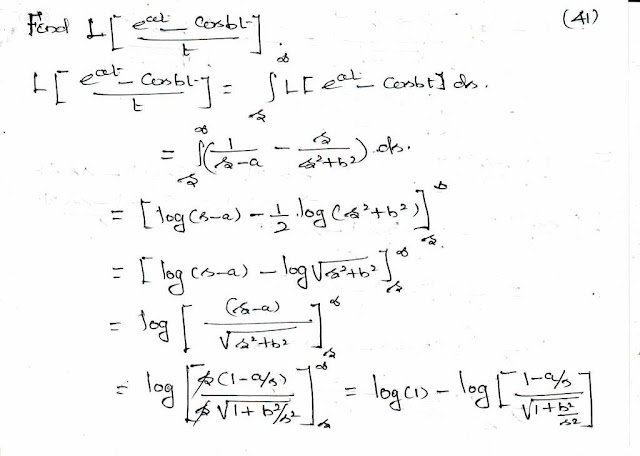 Find L[ e^{at} - Cosbt / t ] (41)
L[ e^{at} - Cosbt / t ] = ∫_s^∞ L[ e^{at} - Cosbt ] ds.
= ∫_s^∞ ( 1/(s-a) - s/(s²+b²) ) ds.
= [ log(s-a) - 1/2 log(s²+b²) ]_s^∞
= [ log(s-a) - log√(s²+b²) ]_s^∞
= log [ (s-a) / √(s²+b²) ]_s^∞
= log [ s(1-a/s) / s√(1+b²/s²) ]_s^∞ = log(1) - log [ (1-a/s) / √(1+b²/s²) ]